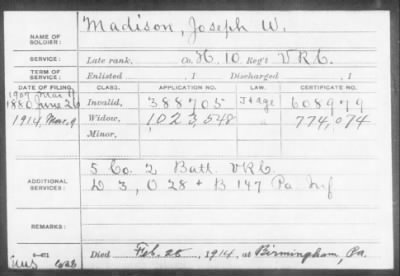 NAME OF SOLDIER: Madison, Joseph W.
SERVICE: Late rank, Co. H, 10 Reg't V.R.C.
TERM OF SERVICE: Enlisted , 1 Discharged , 1
DATE OF FILING. CLASS. APPLICATION NO. LAW. CERTIFICATE NO.
1907 Mar 9
1880 June 26 Invalid, 388705 J & age 608979
1914, Mar. 9 Widow, 1,023,548 " 774,074
Minor,
ADDITIONAL SERVICES:
5 Co. 2 Batt. VRC
D 3, O 28 + B 147 Pa. Inf
REMARKS:
Died Feb. 25, 1914, at Birmingham, Pa.